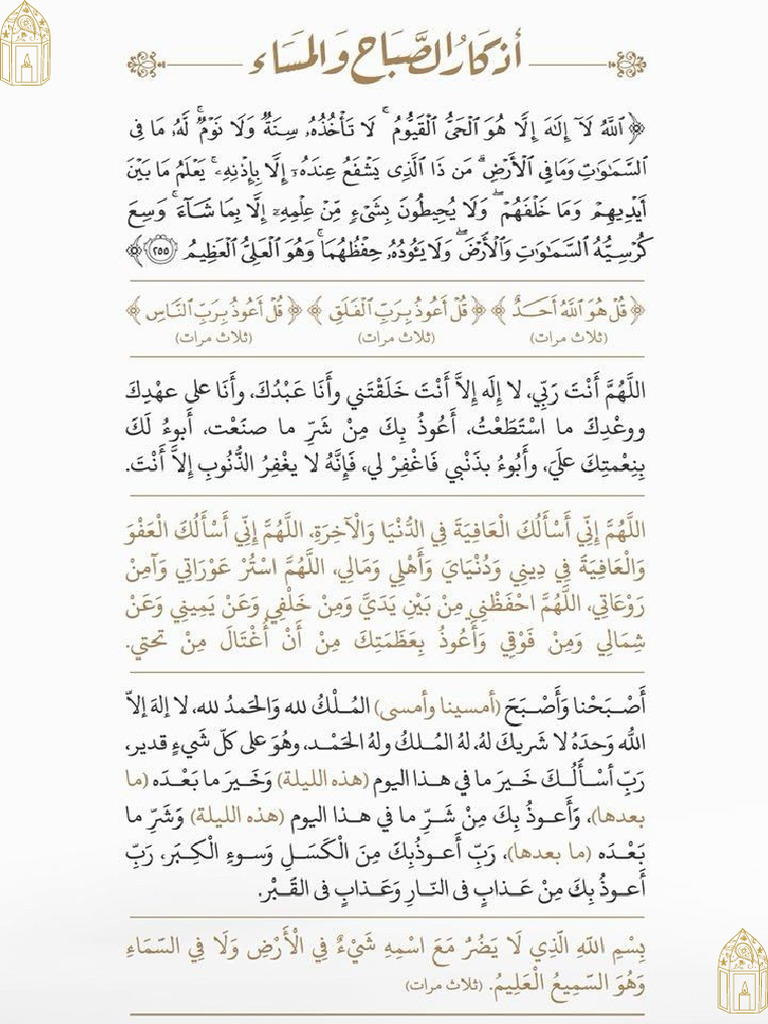 أذكار الصَّبَاح وَالمَسَاء
﴿ ٱللَّهُ لَآ إِلَٰهَ إِلَّا هُوَ ٱلْحَىُّ ٱلْقَيُّومُ ۚ لَا تَأْخُذُهُۥ سِنَةٌ وَلَا نَوْمٌ ۚ لَّهُۥ مَا فِى
ٱلسَّمَٰوَٰتِ وَمَا فِى ٱلْأَرْضِ ۗ مَن ذَا ٱلَّذِى يَشْفَعُ عِندَهُۥٓ إِلَّا بِإِذْنِهِۦ ۚ يَعْلَمُ مَا بَيْنَ
أَيْدِيهِمْ وَمَا خَلْفَهُمْ ۖ وَلَا يُحِيطُونَ بِشَىْءٍ مِّنْ عِلْمِهِۦٓ إِلَّا بِمَا شَآءَ ۚ وَسِعَ
كُرْسِيُّهُ ٱلسَّمَٰوَٰتِ وَٱلْأَرْضَ ۖ وَلَا يَـُٔودُهُۥ حِفْظُهُمَا ۚ وَهُوَ ٱلْعَلِىُّ ٱلْعَظِيمُ ٢٥٥ ﴾
﴿ قُلْ هُوَ ٱللَّهُ أَحَدٌ ﴾ ﴿ قُلْ أَعُوذُ بِرَبِّ ٱلْفَلَقِ ﴾ ﴿ قُلْ أَعُوذُ بِرَبِّ ٱلنَّاسِ ﴾
(ثلاث مرات) (ثلاث مرات) (ثلاث مرات)
اللَّهُمَّ أَنْتَ رَبِّي، لا إِلَه إِلاَّ أَنْتَ خَلَقْتَني وأَنَا عَبْدُكَ، وأَنَا على عهْدِكَ
ووعْدِكَ ما اسْتَطَعْتُ، أَعُوذُ بِكَ مِنْ شَرِّ ما صنَعْت، أَبوءُ لَكَ
بِنِعْمتِكَ علَيَ، وأَبُوءُ بذَنْبي فَاغْفِرْ لي، فَإِنَّهُ لا يغْفِرُ الذُّنُوبِ إِلاَّ أَنْتَ.
اللَّهُمَّ إِنِّي أَسْأَلُكَ الْعَافِيَةَ فِي الدُّنْيَا وَالْآخِرَةِ، اللَّهُمَّ إِنِّي أَسْأَلُكَ الْعَفْوَ
وَالْعَافِيَةَ فِي دِينِي وَدُنْيَايَ وَأَهْلِي وَمَالِي، اللَّهُمَّ اسْتُرْ عَوْرَاتِي وَآمِنْ
رَوْعَاتِي، اللَّهُمَّ احْفَظْنِي مِنْ بَيْنِ يَدَيَّ وَمِنْ خَلْفِي وَعَنْ يَمِينِي وَعَنْ
شِمَالِي وَمِنْ فَوْقِي وَأَعُوذُ بِعَظَمَتِكَ مِنْ أَنْ أُغْتَالَ مِنْ تحتي.
أَصْبَحْنا وَأَصْبَحَ (أمسينا وأمسى) المُلْكُ لله وَالحَمدُ لله، لا إلهَ إلاّ
اللّه وَحدَهُ لا شَريكَ لهُ، لهُ المُلكُ ولهُ الحَمْد، وهُوَ على كلّ شَيءٍ قدير،
رَبِّ أسْأَلُكَ خَيرَ ما في هذا اليوم (هذه الليلة) وَخَيرَ ما بَعْدَه (ما
بعدها)، وَأَعوذُ بِكَ مِنْ شَرِّ ما في هذا اليوم (هذه الليلة) وَشَرِّ ما
بَعْدَه (ما بعدها)، رَبِّ أَعوذُبِكَ مِنَ الْكَسَلِ وَسوءِ الْكِبَر، رَبِّ
أَعوذُ بِكَ مِنْ عَذابٍ في النّارِ وَعَذابٍ في القَبْر.
بِسْمِ اللّهِ الَّذِي لَا يَضُرُّ مَعَ اسْمِهِ شَيْءٌ فِي الْأَرْضِ وَلَا فِي السَّمَاءِ
وَهُوَ السَّمِيعُ الْعَلِيمُ. (ثلاث مرات)